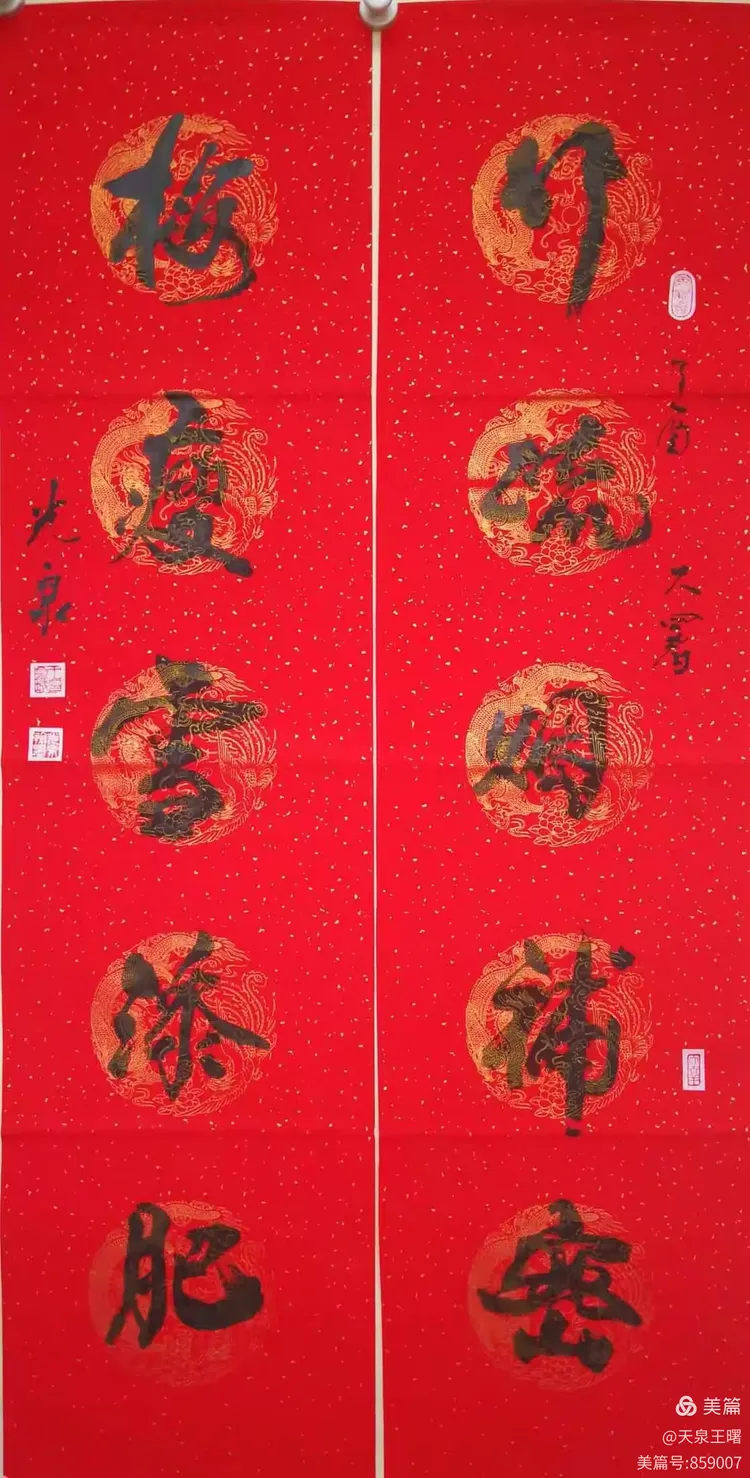 竹疏烟補密
丁酉 大暑
梅瘦雪添肥
光泉
美篇
@天泉王曙
美篇号:859007